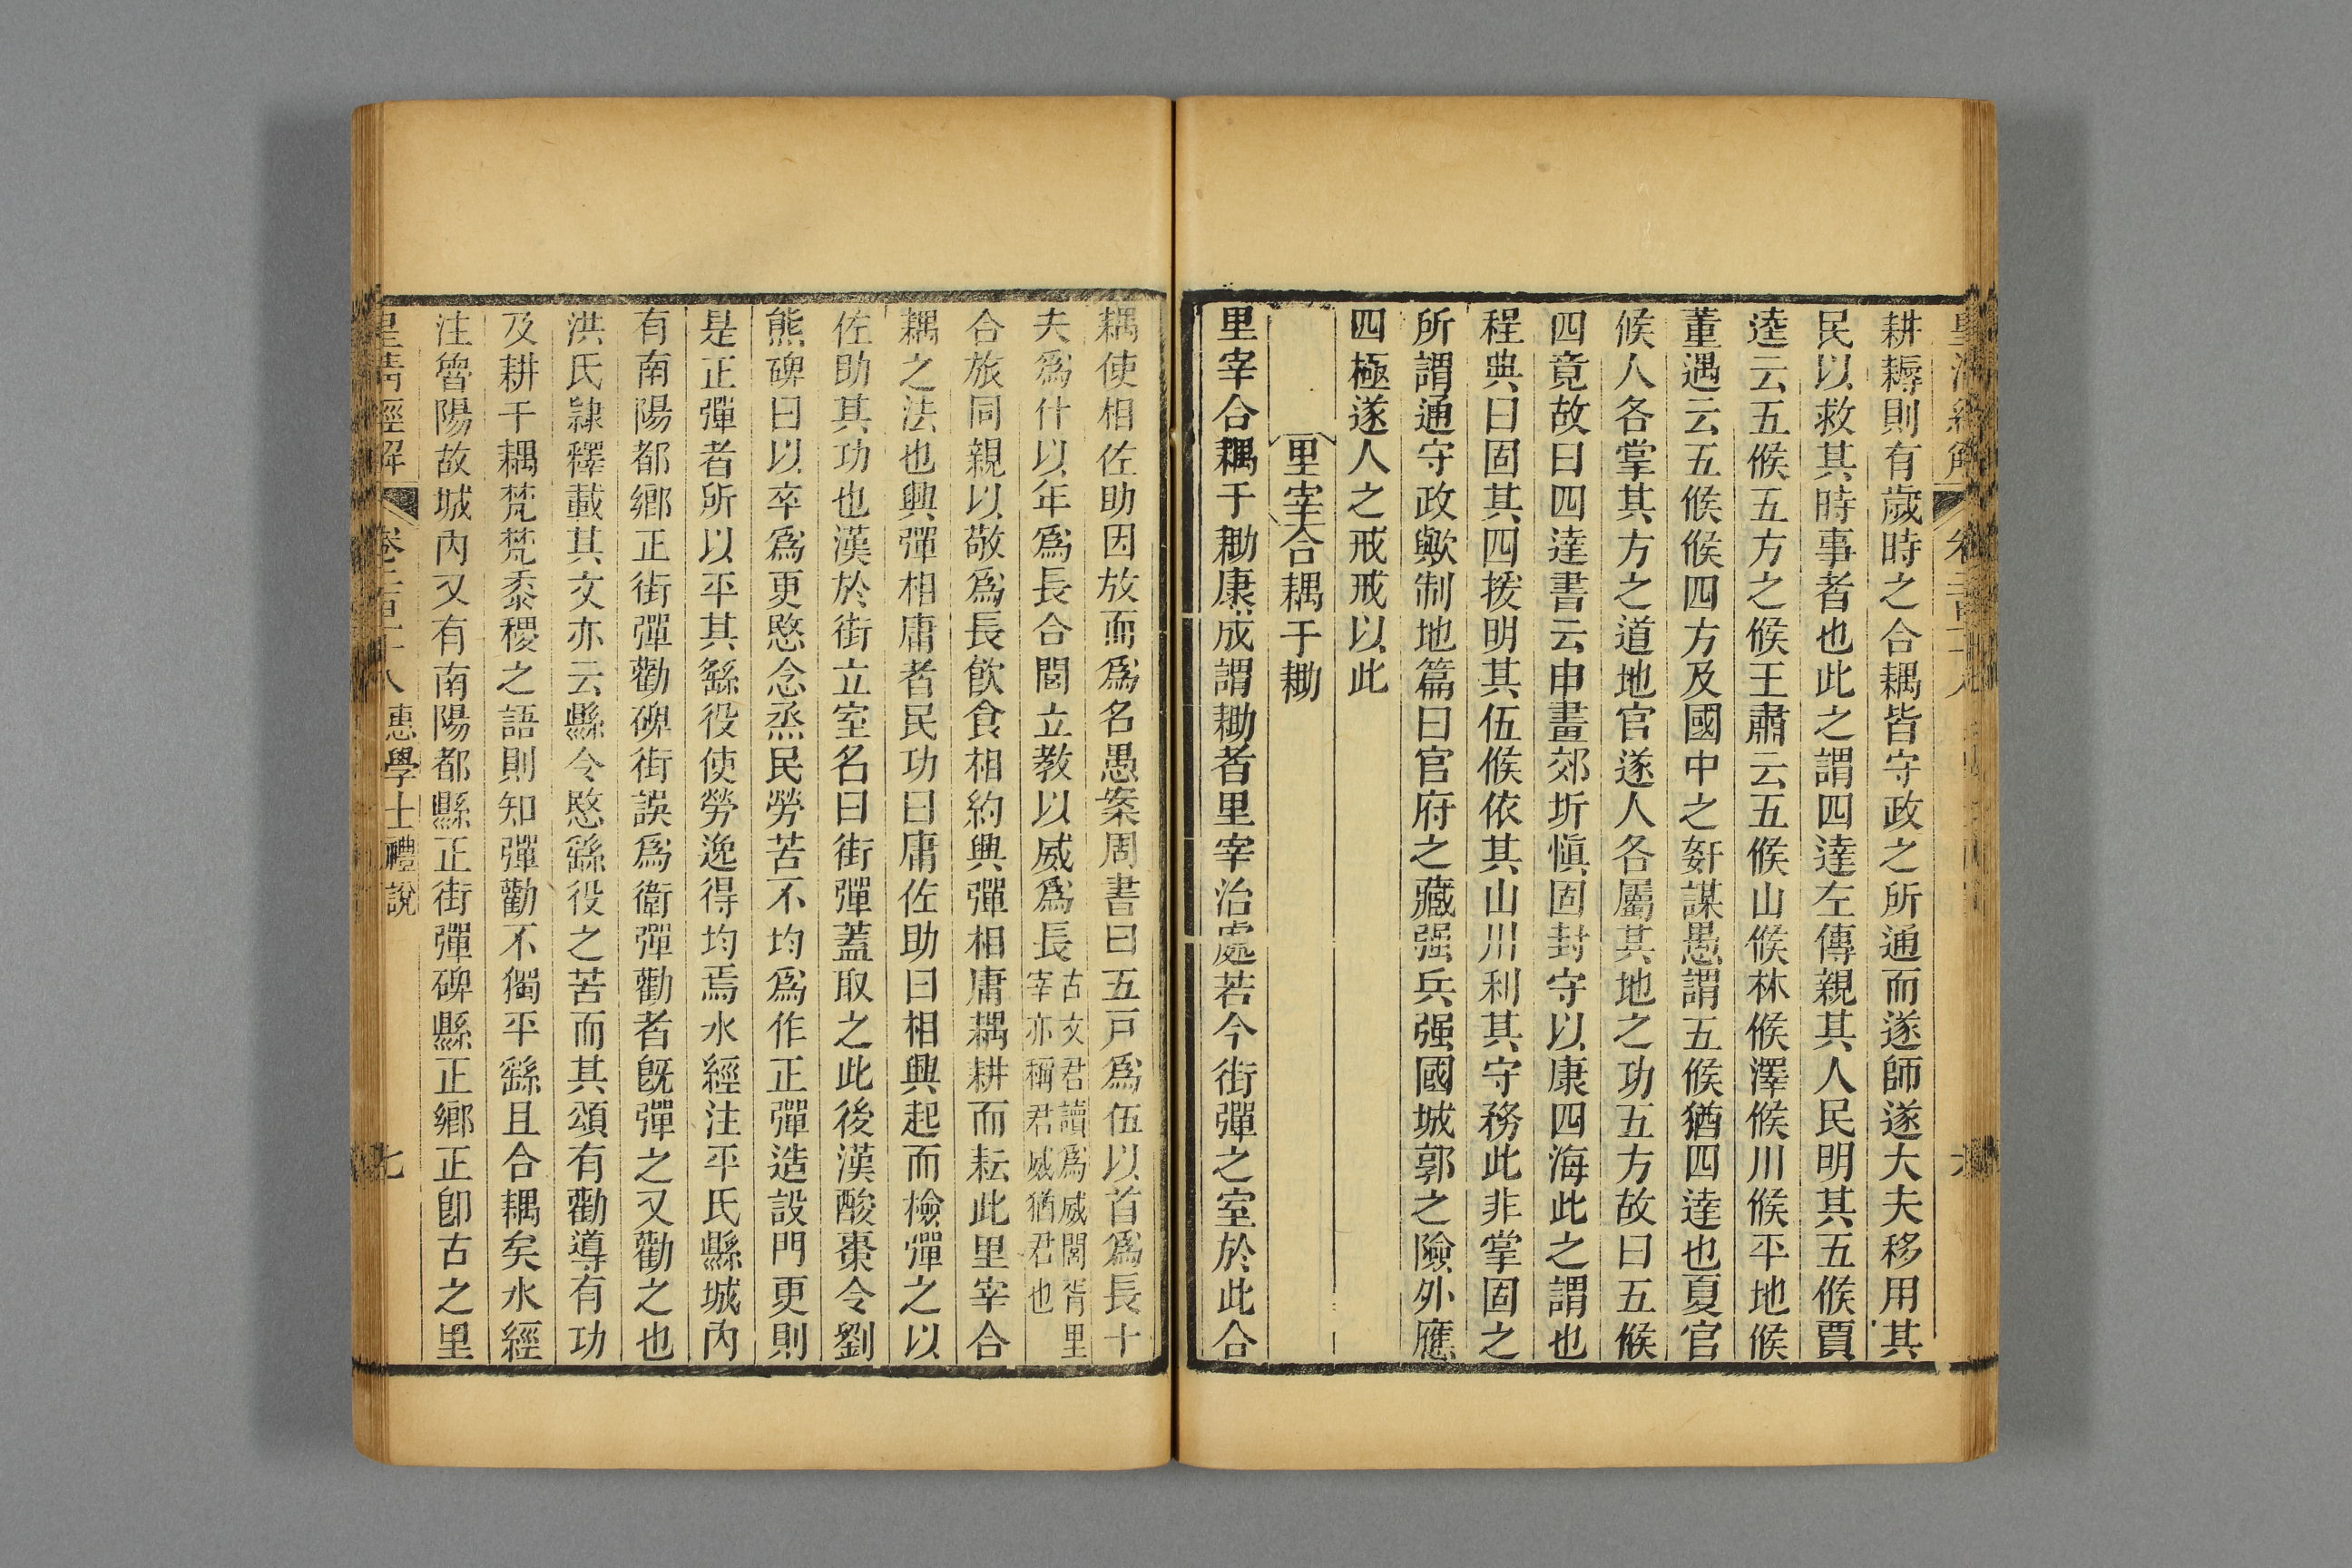 皇清經解 卷二百十八
耕耨則有歲時之合耦皆守政之所通而遂師遂大夫移用其
民以救其時事者也此之謂四達左傳親其人民明其五候賈
逵云五候五方之候王肅云五候山候林候澤候川候平地候
董遇云五候候四方及國中之姧謀愚謂五候猶四達也夏官
候人各掌其方之道地官遂人各屬其地之功五方故曰五候
四竟故曰四達書云申畫郊圻愼固封守以康四海此之謂也
程典曰固其四援明其伍候依其山川利其守務此非掌固之
所謂通守政歟制地篇曰官府之藏强兵强國城郭之險外應
四極遂人之戒戒以此
里宰合耦于耡
里宰合耦于耡康成謂耡者里宰治處若今街彈之室於此合
耦使相佐助因放而爲名愚案周書曰五戸爲伍以首爲長十
夫爲什以年爲長合閭立教以威爲長古文君讀爲威閭胥里宰亦稱君威猶君也
合旅同親以敬爲長飮食相約興彈相庸耦耕而耘此里宰合
耦之法也興彈相庸者民功曰庸佐助曰相興起而檢彈之以
佐助其功也漢於街立室名曰街彈蓋取之此後漢酸棗令劉
熊碑曰以卒爲更愍念烝民勞苦不均爲作正彈造設門更則
是正彈者所以平其繇役使勞逸得均焉水經注平氏縣城內
有南陽都鄉正街彈勸碑街誤爲衛彈勸者旣彈之又勸之也
洪氏隷釋載其文亦云縣令愍繇役之苦而其頌有勸導有功
及耕千耦梵梵黍稷之語則知彈勸不獨平繇且合耦矣水經
注魯陽故城內又有南陽都縣正街彈碑縣正鄉正卽古之里
皇淸經解 卷二百十八 惠學士禮說 七